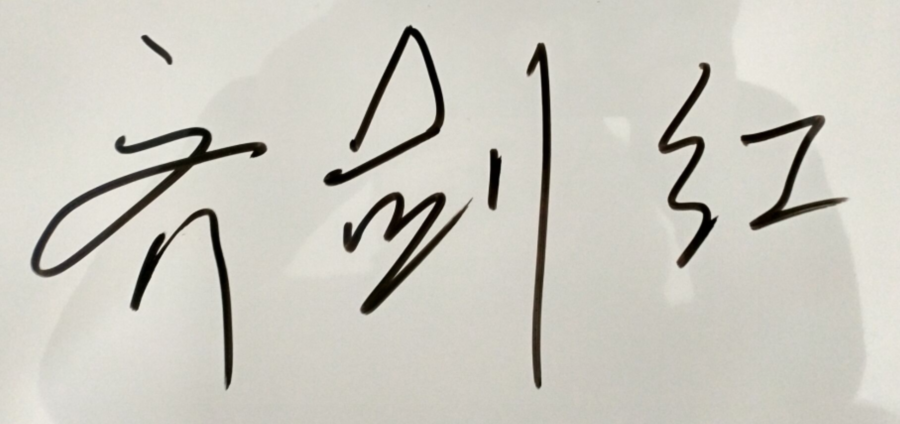 齐剑红